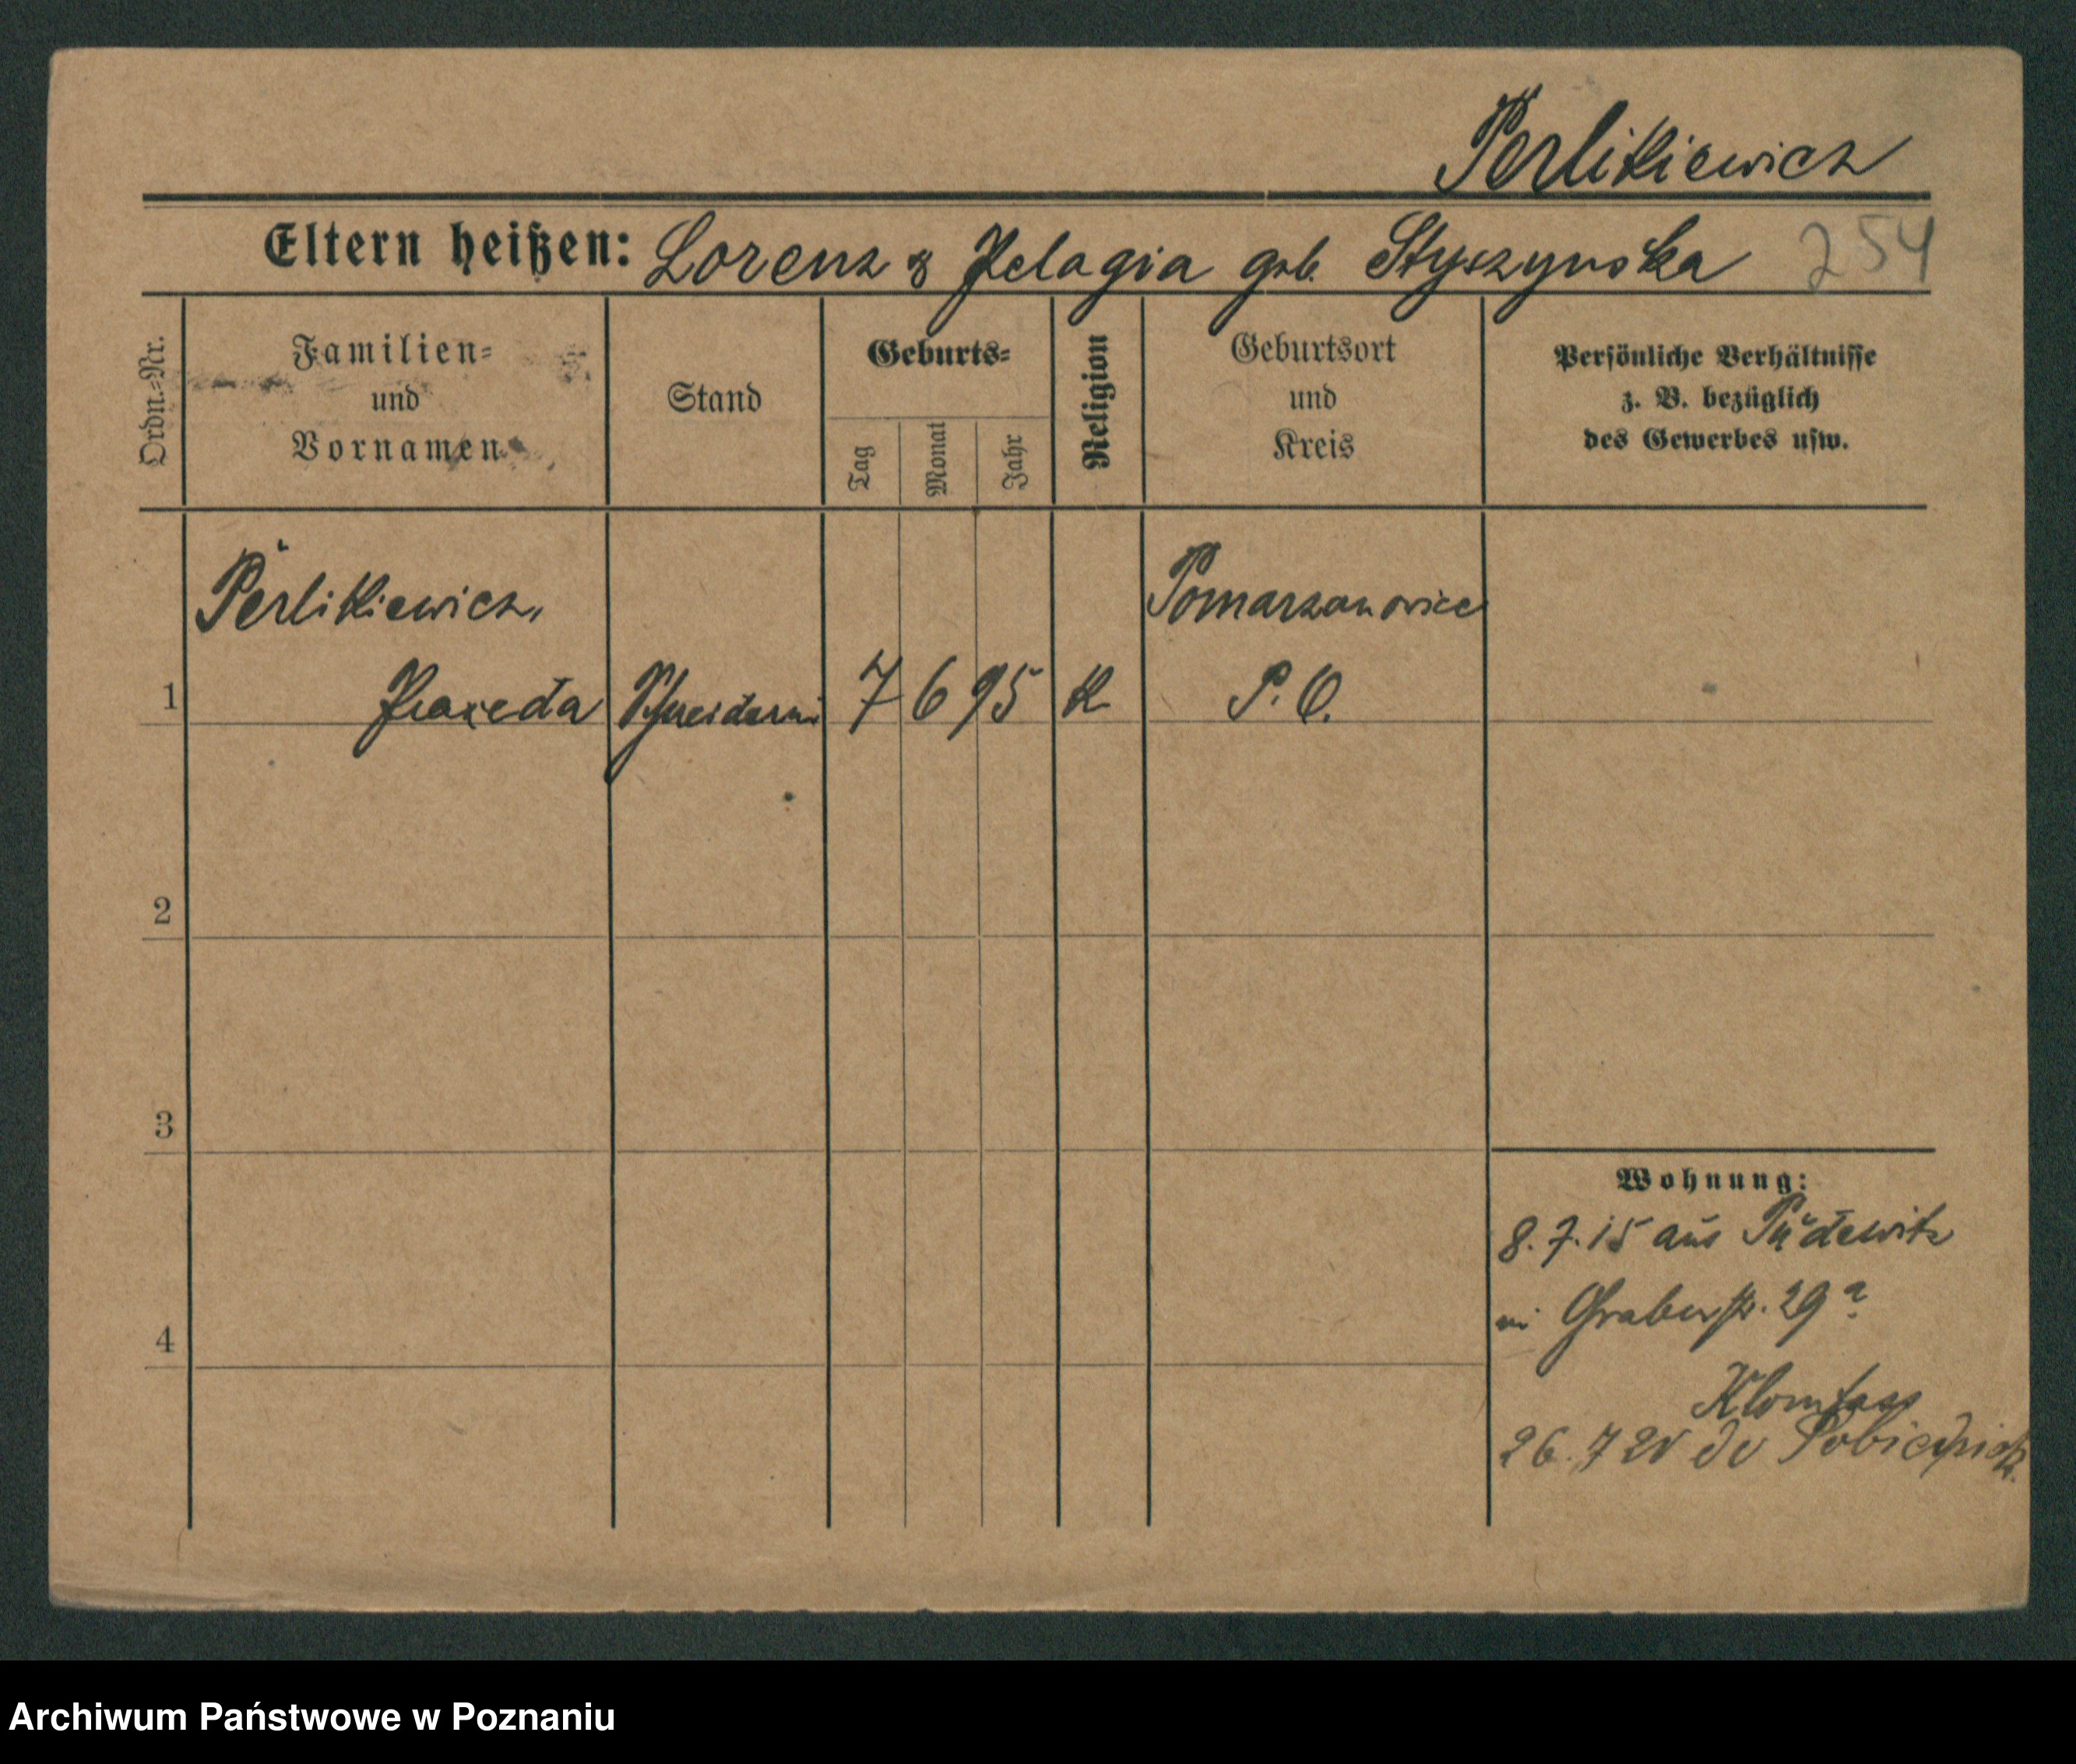 Perlikiewicz
Eltern heißen: Lorenz & Pelagia geb. Styszynska 254
Ordn.-Nr.
Familien-
und
Vornamen
Stand
Geburts-
Tag
Monat
Jahr
Religion
Geburtsort
und
Kreis
Persönliche Verhältnisse
z. B. bezüglich
des Gewerbes usw.
Perlikiewicz,
Pomarzanowice
1 Praxeda Schneiderin 7 6 95 K P. O.
2
3
Wohnung:
8.7.15 aus Pudewitz
Grabenstr. 29
4
26.7 20 do
Archiwum Państwowe w Poznaniu